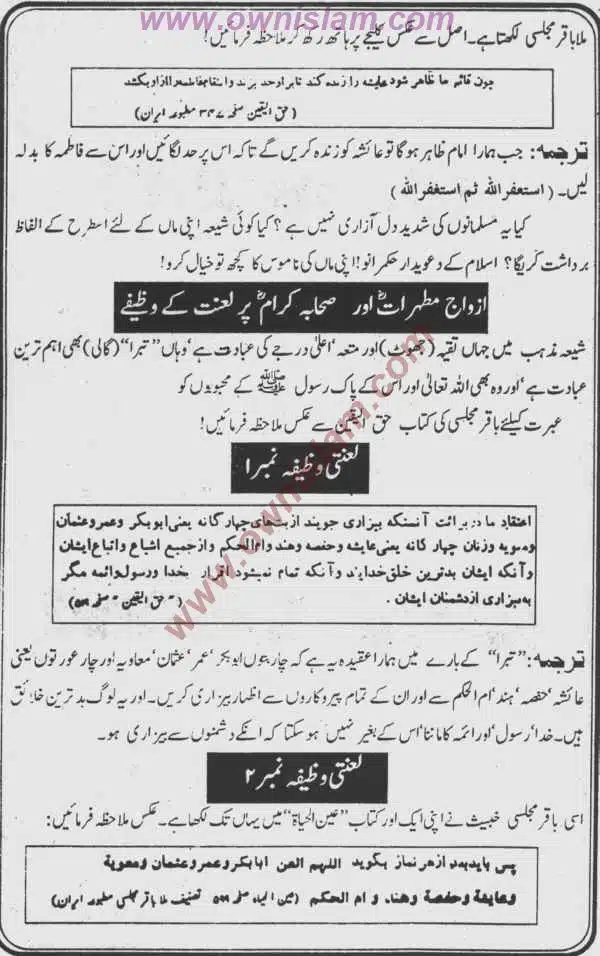 www.ownislam.com
ملا باقر مجلسی لکھتا ہے۔ اصل سے عکس کلیجے پر ہاتھ رکھ کر ملاحظہ فرمائیں!
چون قائم ما ظاهر شود عایشه را زنده کند تا بر او حد بزند و انتقام فاطمه را از او بکشد
(حق الیقین صفحہ ۳۴۷ مطبوعہ ایران)
ترجمہ: جب ہمارا امام ظاہر ہوگا تو عائشہ کو زندہ کریں گے تاکہ اس پر حد لگائیں اور اس سے فاطمہ کا بدلہ
لیں۔ (استغفر الله ثم استغفر الله)
کیا یہ مسلمانوں کی شدید دل آزاری نہیں ہے؟ کیا کوئی شیعہ اپنی ماں کے لئے اسطرح کے الفاظ
برداشت کریگا؟ اسلام کے دعویدار حکمرانو! اپنی ماں کی ناموس کا کچھ تو خیال کرو!
ازواج مطہراتؓ اور صحابہ کرامؓ پر لعنت کے وظیفے
شیعہ مذہب میں جہاں تقیہ (جھوٹ) اور متعہ ’اعلیٰ درجے کی عبادت ہے‘ وہاں ”تبرا“ (گالی) بھی اہم ترین
عبادت ہے ’اور وہ بھی اللہ تعالیٰ اور اس کے پاک رسول ﷺ کے محبوبوں کو
عبرت کیلئے باقر مجلسی کی کتاب حق الیقین سے عکس ملاحظہ فرمائیں!
لعنتی وظیفہ نمبر ۱
اعتقاد ما در برائت آنستکه بیزاری جویند از بت‌های چهار گانه یعنی ابوبکر و عمر و عثمان
و معویه و زنان چهار گانه یعنی عایشه و حفصه و هند و ام الحکم و از جمیع اشیاع و اتباع ایشان
و آنکه ایشان بدترین خلق خدایند و آنکه تمام نمیشود اقرار بخدا و رسول و ائمه مگر
به بیزاری از دشمنان ایشان .
(حق الیقین صفحہ ۵۱۹)
ترجمہ: ”تبرا“ کے بارے میں ہمارا عقیدہ یہ ہے کہ چار بتوں ابوبکر‘ عمر‘ عثمان‘ معاویہ اور چار عورتوں یعنی
عائشہ‘ حفصہ‘ ہند‘ ام الحکم سے اور ان کے تمام پیروکاروں سے اظہار بیزاری کریں۔ اور یہ لوگ بدترین خلائق
ہیں۔ خدا‘ رسول‘ اور ائمہ کا ماننا‘ اس کے بغیر نہیں ہو سکتا کہ انکے دشمنوں سے بیزاری ہو۔
لعنتی وظیفہ نمبر ۲
اسی باقر مجلسی خبیث نے اپنی ایک اور کتاب ”عین الحیاۃ“ میں یہاں تک لکھا ہے۔ عکس ملاحظہ فرمائیں:
پس باید بعد از هر نماز بگوید اللهم العن ابابکر و عمر و عثمان و معویة
و عایشة و حفصة و هند و ام الحکم (عین الحیاۃ صفحہ ۵۹۹ تصنیف ملا باقر مجلسی مطبوعہ ایران)
www.ownislam.com